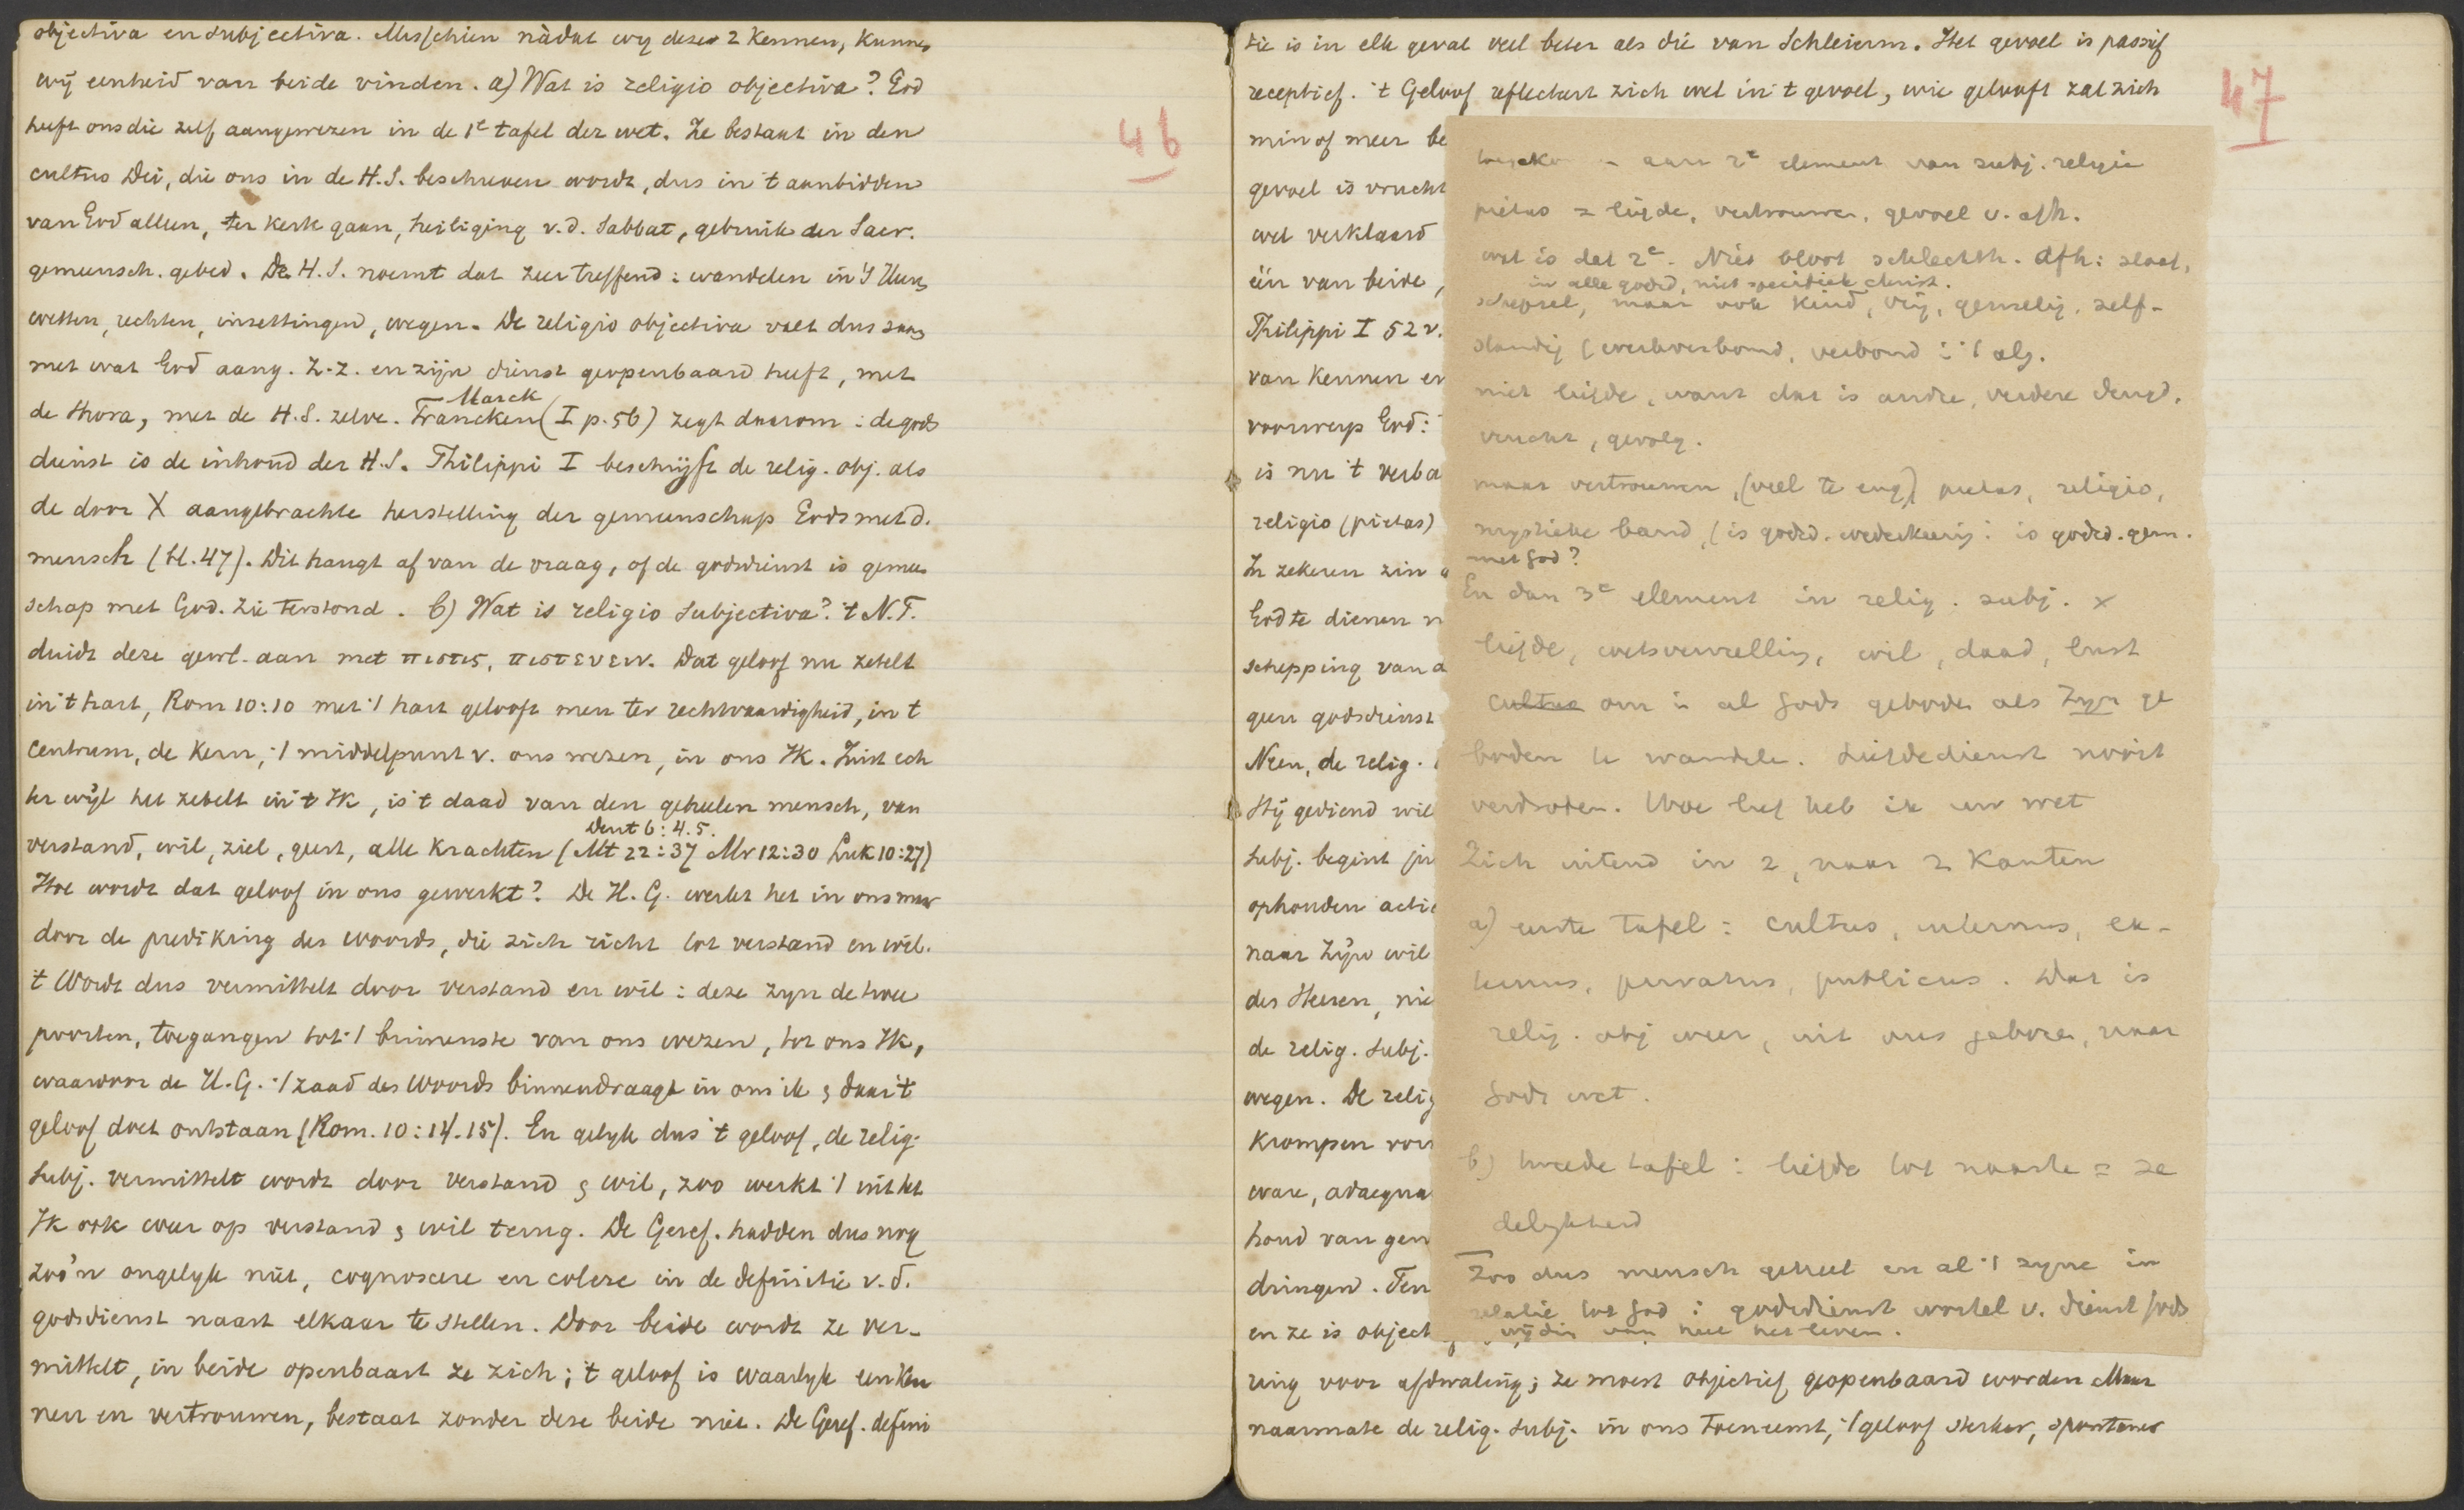 objectiva en subjectiva. Misschien nàdat wy deze 2 kennen, kunnen
wij eenheid van beide vinden. a) Wat is religio objectiva? God
heeft ons die zelf aangewezen in de 1e tafel der wet. Ze bestaat in den
cultus Dei, die ons in de H.S. beschreven wordt, dus in 't aanbidden
van God alleen, ter kerk gaan, heiliging v.d. Sabbat, gebruik der Sacr.
gemeensch. gebed. De H.S. noemt dat zeer treffend: wandelen in 's Heeren
wetten, rechten, inzettingen, wegen. De religio objectiva valt dus saam
met wat God aang. Z.Z. en zijn dienst geopenbaard heeft, met
Marck
de thora, met de H.S. zelve. Francken (I p. 56) zegt daarom: de gods
dienst is de inhoud der H.S. Philippi I beschrijft de relig. obj. als
de door X aangebrachte herstelling der gemeenschap Gods met d.
mensch (bl. 47). Dit hangt af van de vraag, of de godsdienst is gemeen
schap met God. Zie terstond. b) Wat is religio subjectiva? 't N.T.
duidt deze gewl. aan met πιστις, πιστευειν. Dat geloof nu zetelt
in 't hart, Rom 10:10 met 't hart gelooft men ter rechtvaardigheid, in 't
centrum, de kern, 't middelpunt v. ons wezen, in ons Ik. Juist ech
ter wijl het zetelt in 't Ik, is 't daad van den geheelen mensch, van
Deut 6:4.5.
verstand, wil, ziel, geest, alle krachten (Mt 22:37 Mr 12:30 Luk 10:27)
Hoe wordt dat geloof in ons gewerkt? De H.G. werkt het in ons maar
door de prediking des woords, die zich richt tot verstand en wil.
't Wordt dus vermittelt door verstand en wil: deze zyn de twee
poorten, toegangen tot 't binnenste van ons wezen, tot ons Ik,
waardoor de H.G. 't zaad des Woords binnendraagt in ons ik & daar 't
geloof doet ontstaan (Rom. 10:14.15). En gelyk dus 't geloof, de relig.
subj. vermittelt wordt door verstand & wil, zoo werkt 't uit het
Ik ook weer op verstand & wil terug. De Geref. hadden dus nog
zoo'n ongelyk niet, cognoscere en colere in de definitie v.d.
godsdienst naast elkaar te stellen. Door beide wordt ze ver-
mittelt, in beide openbaart ze zich; 't geloof is waarlyk een ken
nen en vertrouwen, bestaat zonder deze beide niet. De Geref. defini
46
47
tie is in elk geval veel beter als die van Schleierm. Het gevoel is passief
receptief. 't Geloof reflecteert zich wel in 't gevoel, wie gelooft zal zich
min of meer be
gevoel is vrucht
wel verklaard
één van beide,
Philippi I 52 v.
van kennen en
voorwerp God:
is nu 't verba
religio (pietas)
In zekeren zin
God te dienen n
schepping van a
geen godsdienst
Neen, de relig.
Hij gediend wil
subj. begint
ophouden actie
naar Zijn wil
des Heeren, nie
de relig. subj.
wegen. De relig
krompen voor
ware, adaequa
houd van gen
dringen. Ten
en ze is object
ring voor afdwaling; ze moest objectief geopenbaard worden Maar
naarmate de relig. subj. in ons toeneemt, 't geloof sterker, spontaner
aan 2e element van subj. religie
pietas = liefde, vertrouwen, gevoel v. afh.
wat is dat 2e. Niet bloot schlechth. Afh: slaaf,
in alle godsd, niet specifiek christ.
schepsel, maar ook kind, vrij, gewillig, zelf-
standig (werkverbond, verbond in 't alg.
niet liefde, want dat is andre, verdere deugd,
vrucht, gevolg.
maar vertrouwen, (veel te eng) pietas, religio,
mystieke band, (is godsd. wederkeerig: is godsd. gem.
met God?
En dan 3e element in relig. subj. x
liefde, wetsvervulling, wil, daad, lust
cultus om in al Gods geboden als Zyn ge
boden te wandelen. Liefdedienst nooit
verdroten. Hoe lief heb ik uw wet
Zich uitend in 2, naar 2 Kanten
a) eerste tafel: cultus, internus, ex-
ternus, privatus, publicus. Dat is
relig. obj weer, uit ons geboren, naar
Gods wet.
b) tweede tafel: liefde tot naaste = ze
delykheid
Zoo dus mensch geheel en al 't zyne in
relatie tot God: godsdienst wortel v. dienst Gods
wijding van heel het leven.